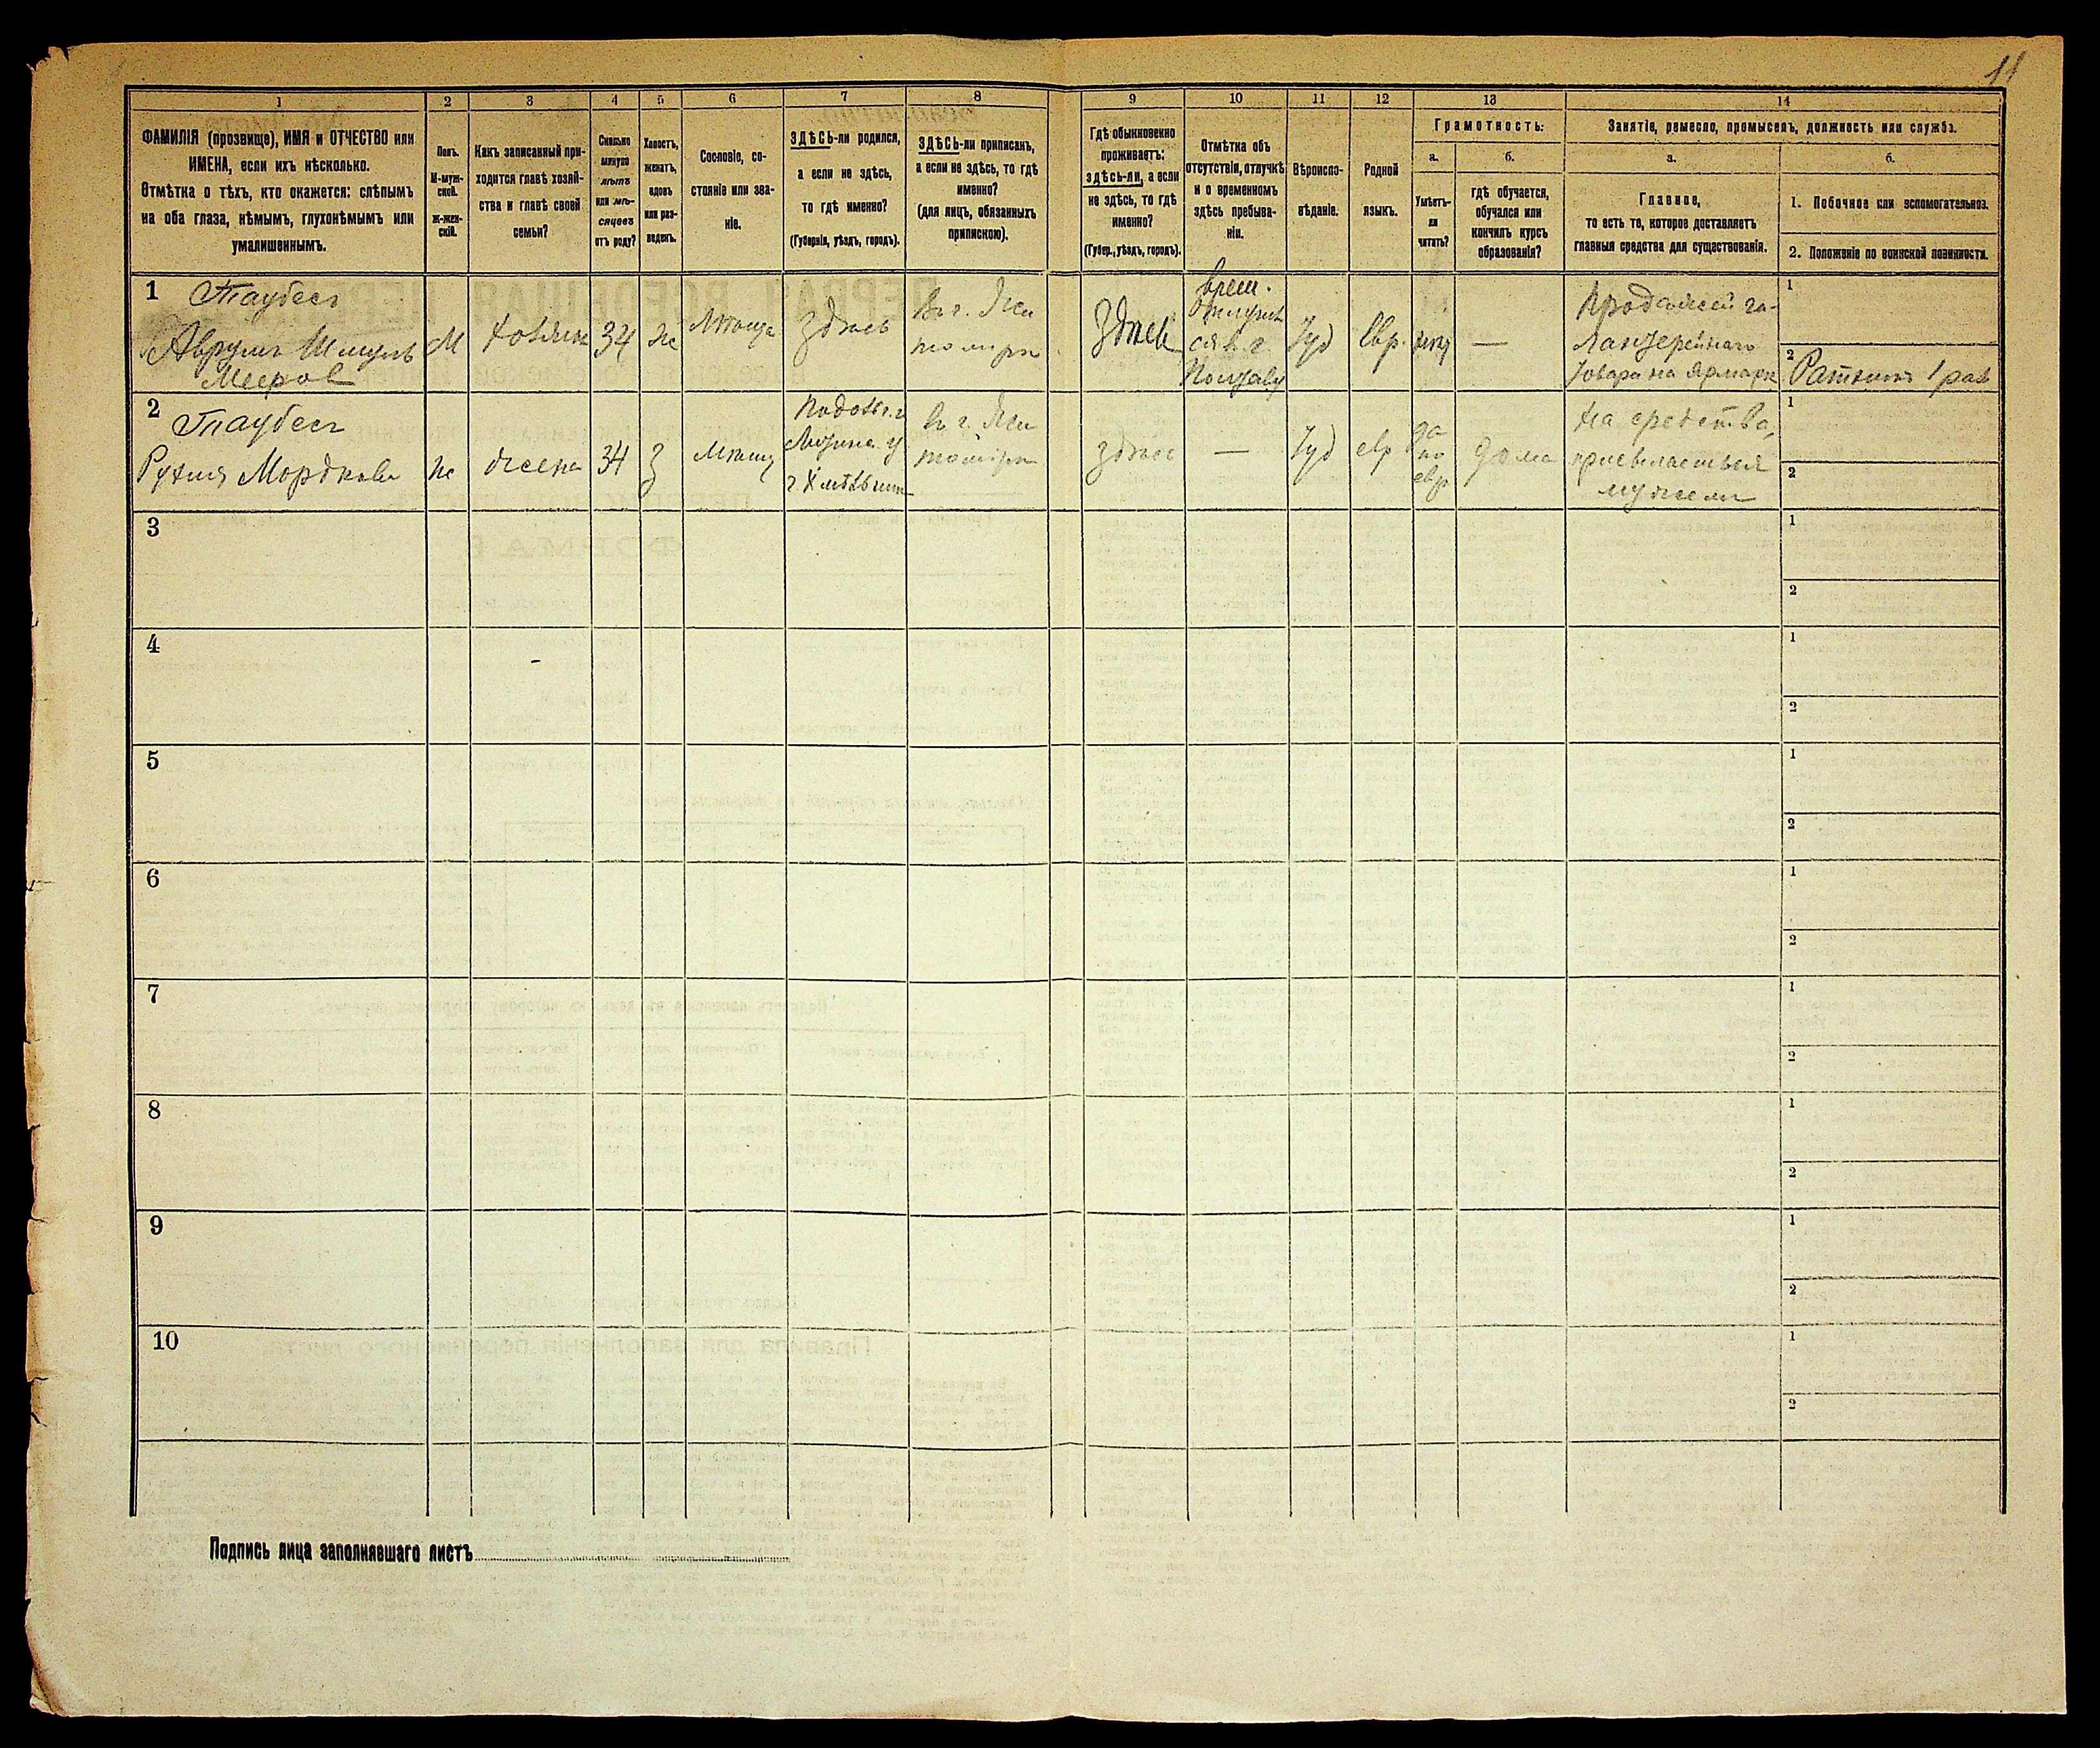 11
1
2
3
4
5
6
7
8
9
10
11
12
13
14
ФАМИЛІЯ (прозвище), ИМЯ и ОТЧЕСТВО или
ИМЕНА, если ихъ нѣсколько.
Отмѣтка о тѣхъ, кто окажется: слѣпымъ
на оба глаза, нѣмымъ, глухонѣмымъ или
умалишеннымъ.
Полъ.
М-муж-
ской.
Ж-жен-
скій.
Какъ записанный при-
ходится главѣ хозяй-
ства и главѣ своей
семьи?
Сколько
минуло
лѣтъ
или мѣ-
сяцевъ
отъ роду?
Холостъ,
женатъ,
вдовъ
или раз-
веденъ.
Сословіе, со-
стояніе или зва-
ніе.
ЗДѢСЬ-ли родился,
а если не здѣсь,
то гдѣ именно?
(Губернія, уѣздъ, городъ).
ЗДѢСЬ-ли приписанъ,
а если не здѣсь, то гдѣ
именно?
(для лицъ, обязанныхъ
припискою).
Гдѣ обыкновенно
проживаетъ:
здѣсь-ли, а если
не здѣсь, то гдѣ
именно?
(Губер., уѣздъ, городъ).
Отмѣтка объ
отсутствіи, отлучкѣ
и о временномъ
здѣсь пребыва-
ніи.
Вѣроиспо-
вѣданіе.
Родной
языкъ.
Грамотность:
а.
Умѣетъ-
ли
читать?
б.
гдѣ обучается,
обучался или
кончилъ курсъ
образованія?
Занятіе, ремесло, промыселъ, должность или служба.
а.
Главное,
то есть то, которое доставляетъ
главныя средства для существованія.
б.
1. Побочное или вспомогательное.
2. Положеніе по воинской повинности.
1
Таубесъ
Аврумъ Шмуль
Мееров
М
хозяин
34
ж
здѣсь
Здѣсь
врем.
Іуд
Евр.
—
Продажей га-
лантерейнаго
товара на ярмарк
1
2
Ратникъ 1 раз
2
Таубесъ
Рухля Мордкова
ж
жена
34
З
Подольс. г
здѣсь
—
Іуд
евр
да
по
евр
дома
На средства,
мужем
1
2
3
1
2
4
1
2
5
1
2
6
1
2
7
1
2
8
1
2
9
1
2
10
1
2
Подпись лица заполнявшаго листъ